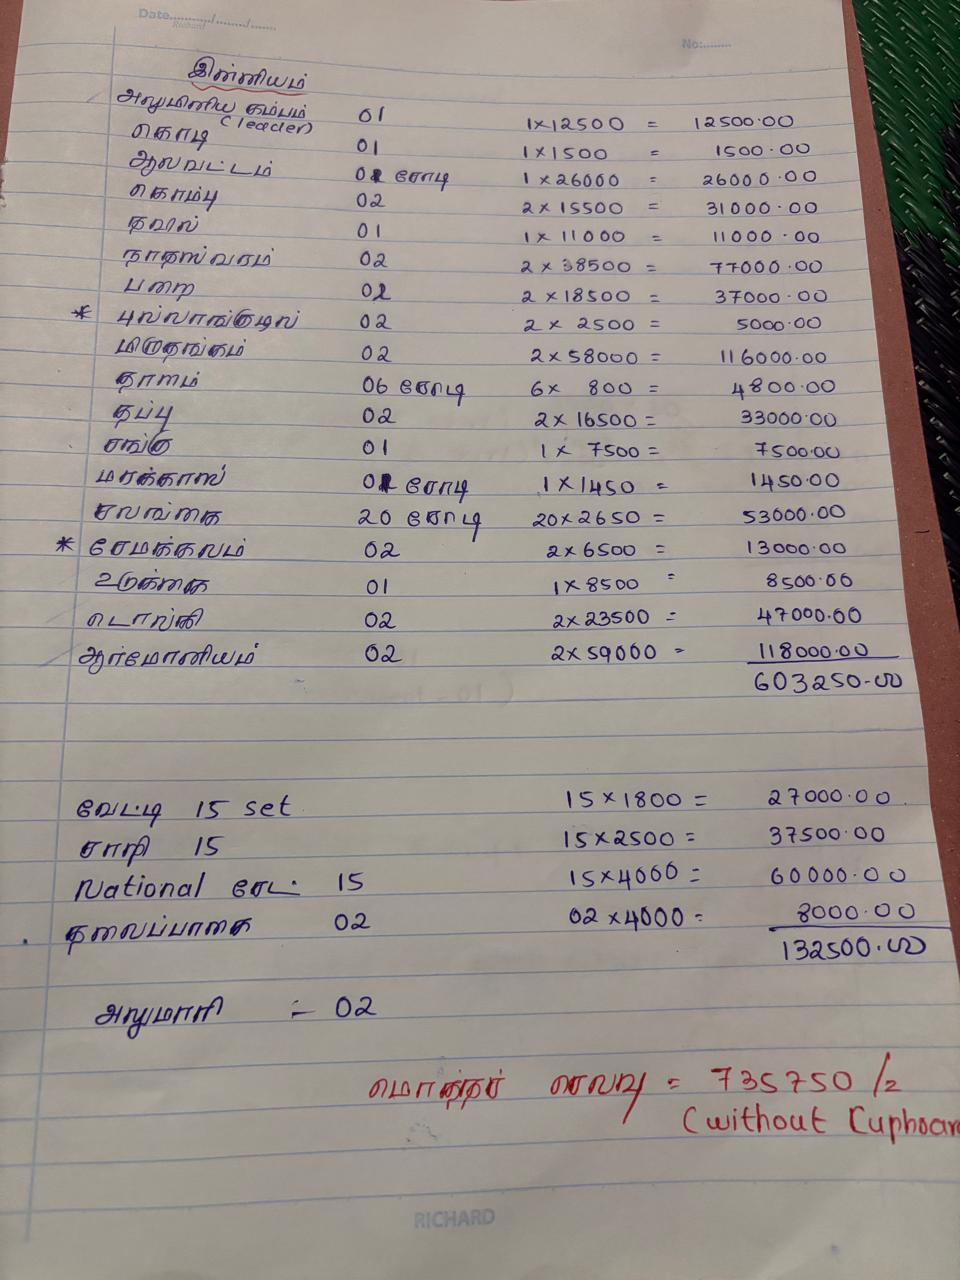 Date............/........./.......
Richard
No:........
இன்னியம்
அலுமினிய கம்பம் 01 1x12500 = 12500.00
(leader)
கொடி 01 1x1500 = 1500.00
ஆலவட்டம் 01 சோடி 1 x 26000 = 26000.00
கொம்பு 02 2 x 15500 = 31000.00
தவில் 01 1x 11000 = 11000.00
நாதஸ்வரம் 02 2 x 38500 = 77000.00
பறை 02 2 x 18500 = 37000.00
* புல்லாங்குழல் 02 2 x 2500 = 5000.00
மிருதங்கம் 02 2x58000 = 116000.00
தாளம் 06 சோடி 6x 800 = 4800.00
தப்பு 02 2x 16500 = 33000.00
சங்கு 01 1x 7500 = 7500.00
மராக்காஸ் 01 சோடி 1x1450 = 1450.00
சலங்கை 20 சோடி 20x2650 = 53000.00
* சேமக்கலம் 02 2x6500 = 13000.00
உடுக்கை 01 1x8500 = 8500.00
டொல்கி 02 2x23500 = 47000.00
ஆர்மோனியம் 02 2x59000 = 118000.00
603250.00
வேட்டி 15 set 15x1800 = 27000.00
சாறி 15 15x2500 = 37500.00
National சேட் 15 15x4000 = 60000.00
தலைப்பாகை 02 02x4000= 8000.00
132500.00
அலுமாரி :- 02
மொத்தச் செலவு = 735750/=
(without Cupboar
RICHARD